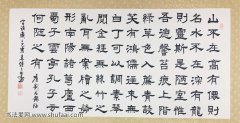 山不在高有僊則
名水不在深有龍
則靈斯是陋室惟
吾德馨苔痕上階
綠草色入簾青談
笑有鴻儒往來無
白丁可以調素琴
閱金經無絲竹之
亂耳無案牘之勞
形南陽諸葛廬西
蜀子雲亭孔子云
何陋之有
唐劉禹錫
www.shufaai.com